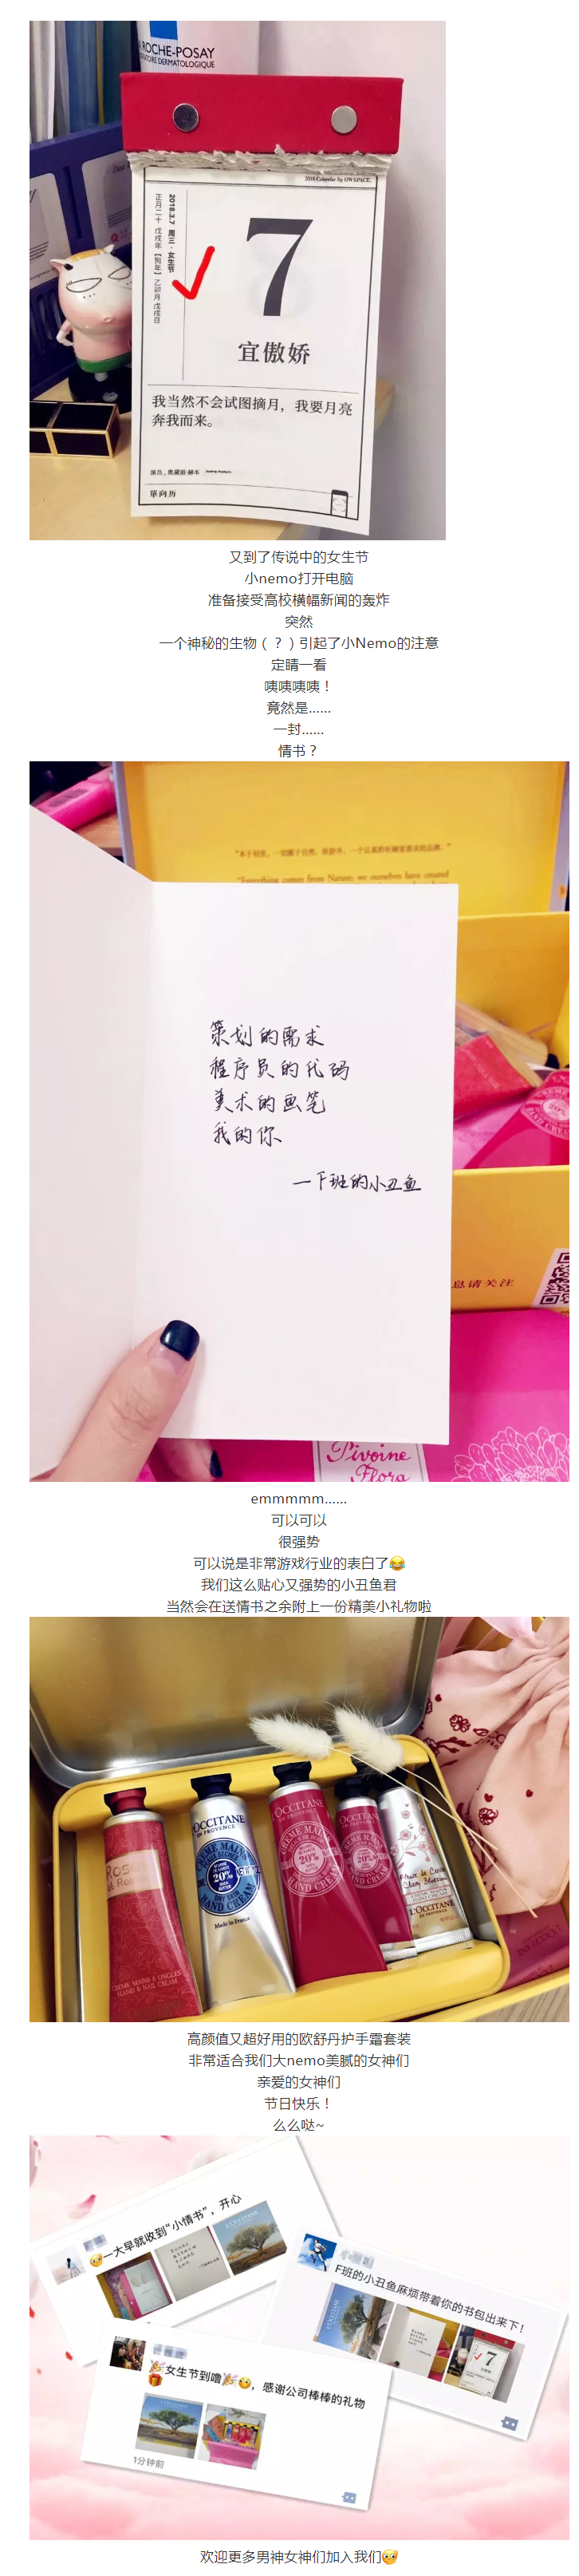 ROCHE-POSAY
LABORATOIRE DERMATOLOGIQUE
2018 Calendar by OWSPACE.
2018.3.7 周三·女生节
正月二十 戊戌年【狗年】乙卯月 戊戌日
7
宜傲娇
我当然不会试图摘月，我要月亮
奔我而来。
演员，奥黛丽·赫本
單向历
又到了传说中的女生节
小nemo打开电脑
准备接受高校横幅新闻的轰炸
突然
一个神秘的生物（？）引起了小Nemo的注意
定睛一看
咦咦咦咦！
竟然是……
一封……
情书？
"Everything comes from Nature; we ourselves have created
策划的需求
程序员的代码
美术的画笔
我的你
一下班的小丑鱼
息请关注
Pivoine
Flora
emmmmm……
可以可以
很强势
可以说是非常游戏行业的表白了😂
我们这么贴心又强势的小丑鱼君
当然会在送情书之余附上一份精美小礼物啦
L'OCCITANE
EN PROVENCE
CRÈME MAINS
20%
HAND CREAM
Made in France
Rose
CRÈME MAINS & ONGLES
HAND & NAIL CREAM
L'OCCITANE
EN PROVENCE
CRÈME MAINS
20%
HAND CREAM
L'OCCITANE
20%
Cherry Blossom
L'OCCITANE
EN PROVENCE
高颜值又超好用的欧舒丹护手霜套装
非常适合我们大nemo美腻的女神们
亲爱的女神们
节日快乐！
么么哒~
一大早就收到“小情书”，开心
F班的小丑鱼麻烦带着你的书包出来下！
7
🎉女生节到噜🎉，感谢公司棒棒的礼物
🎁
1分钟前
欢迎更多男神女神们加入我们